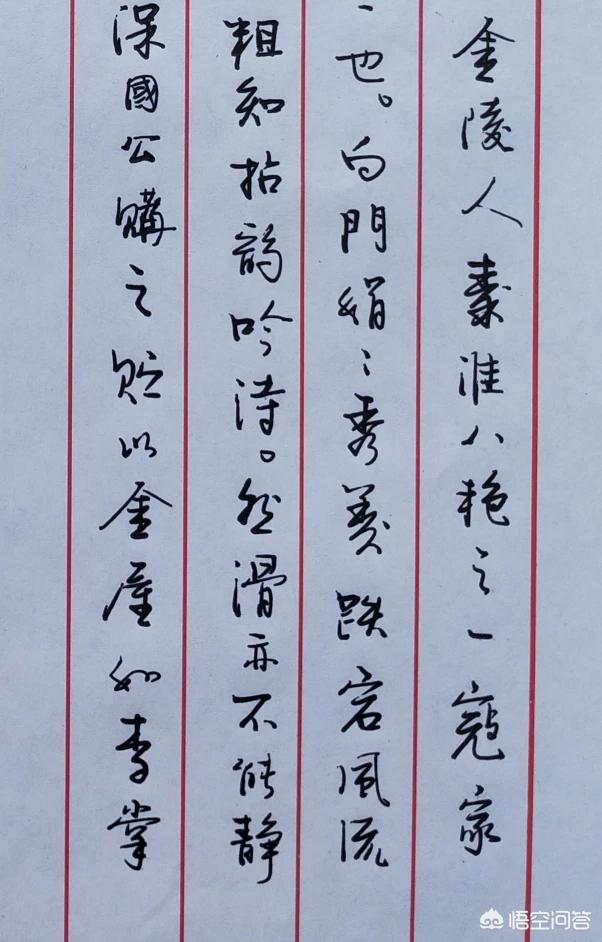 金陵人秦淮八艳之一寇家
一也。白门娟〻秀美跌宕风流
粗知拈韵吟诗。然滑亦不能静
保國公購之贮以金屋如李掌
悟空问答